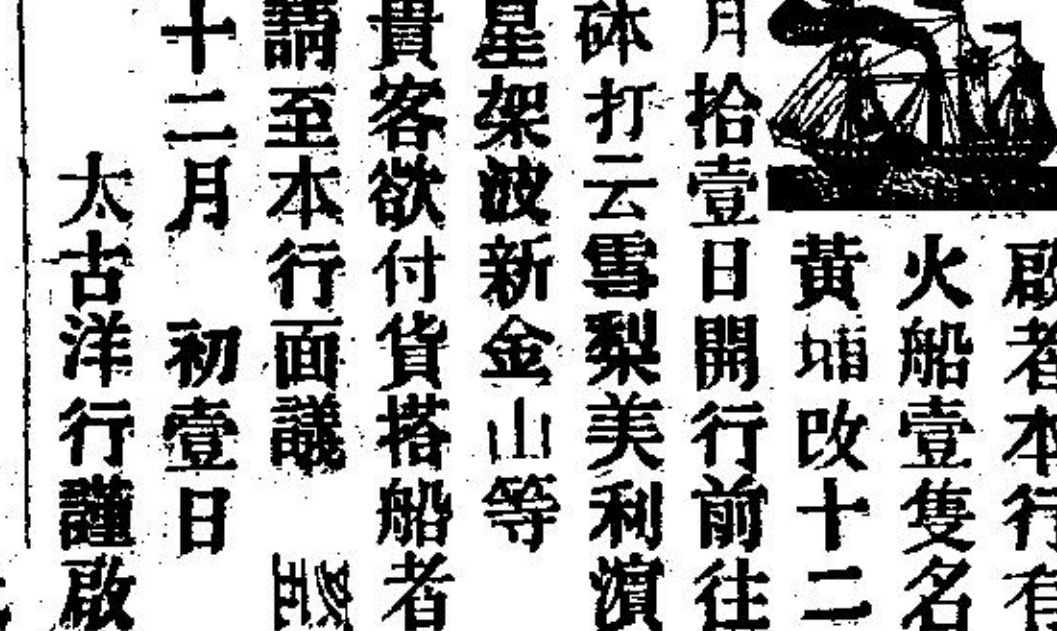 啟者本行有
火船壹隻名
黃埔改十二
月拾壹日開行前往
砵打云雪梨美利濱
星架波新金山等
貴客欲付貨搭船者
請至本行面議
十二月 初壹日
太古洋行謹啟